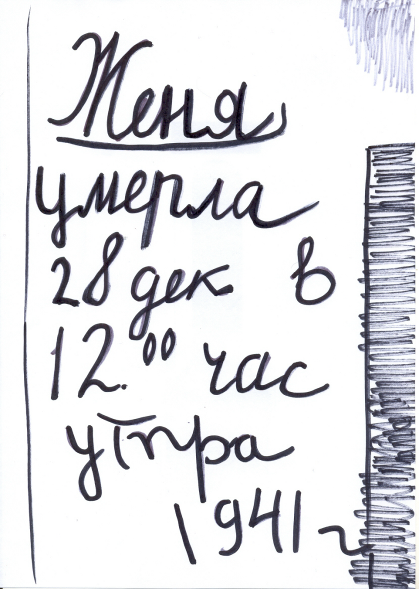 Женя
умерла
28 дек в
12.00 час
утра
1941 г